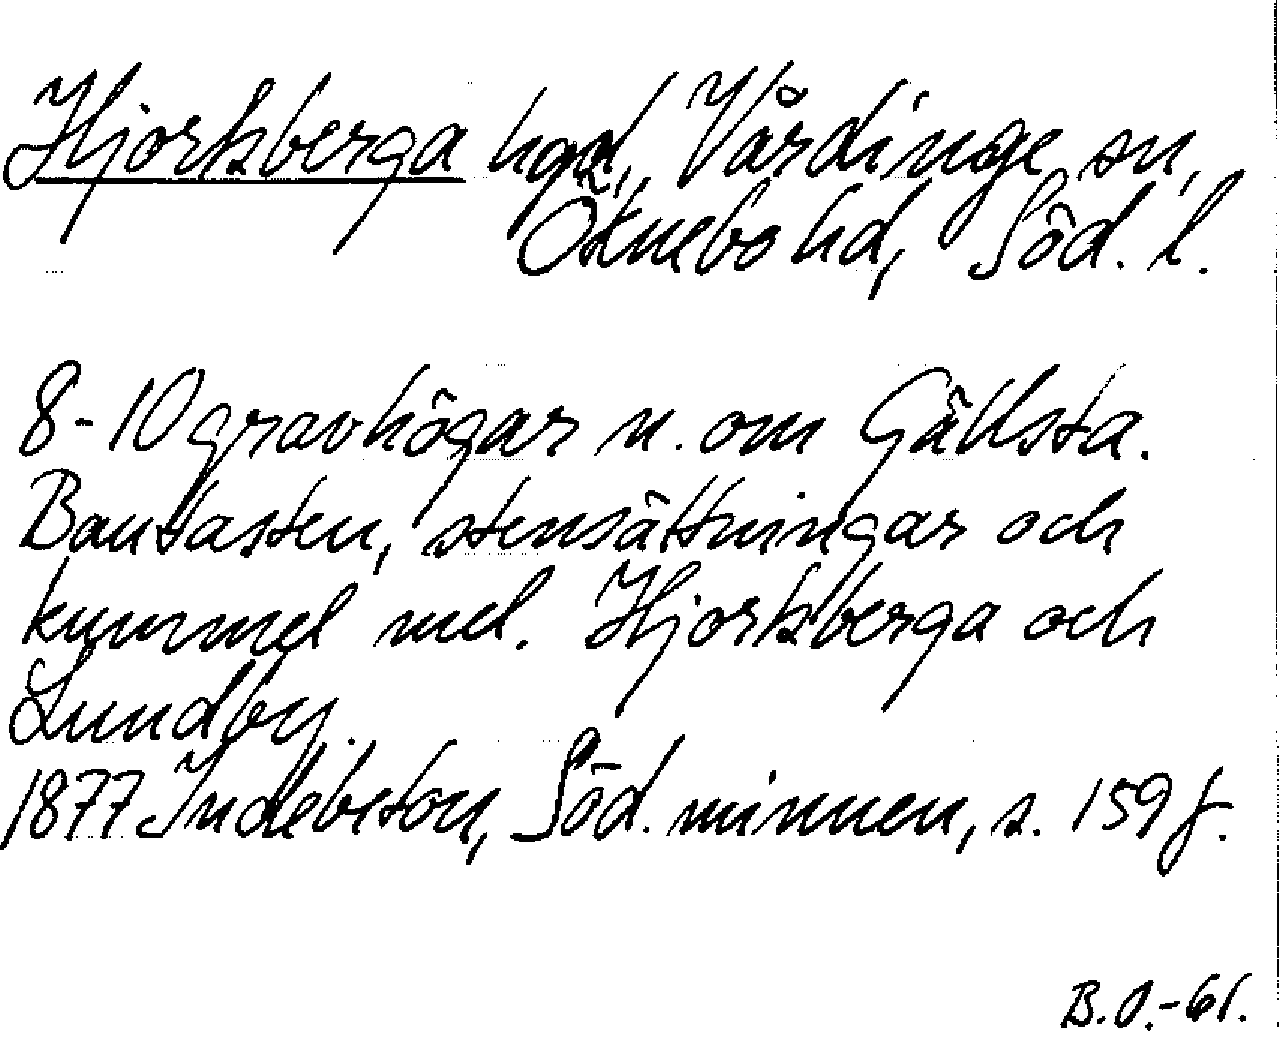 Hjortsberga hgd, Vårdinge sn,
Öknebo hd, Söd. l.
8-10 gravhögar n. om Gällsta.
Bautasten, stensättningar och
kummel mel. Hjortsberga och
Lundby.
1877 Indebetou, Söd. minnen, s. 159 f.
B.O.-61.